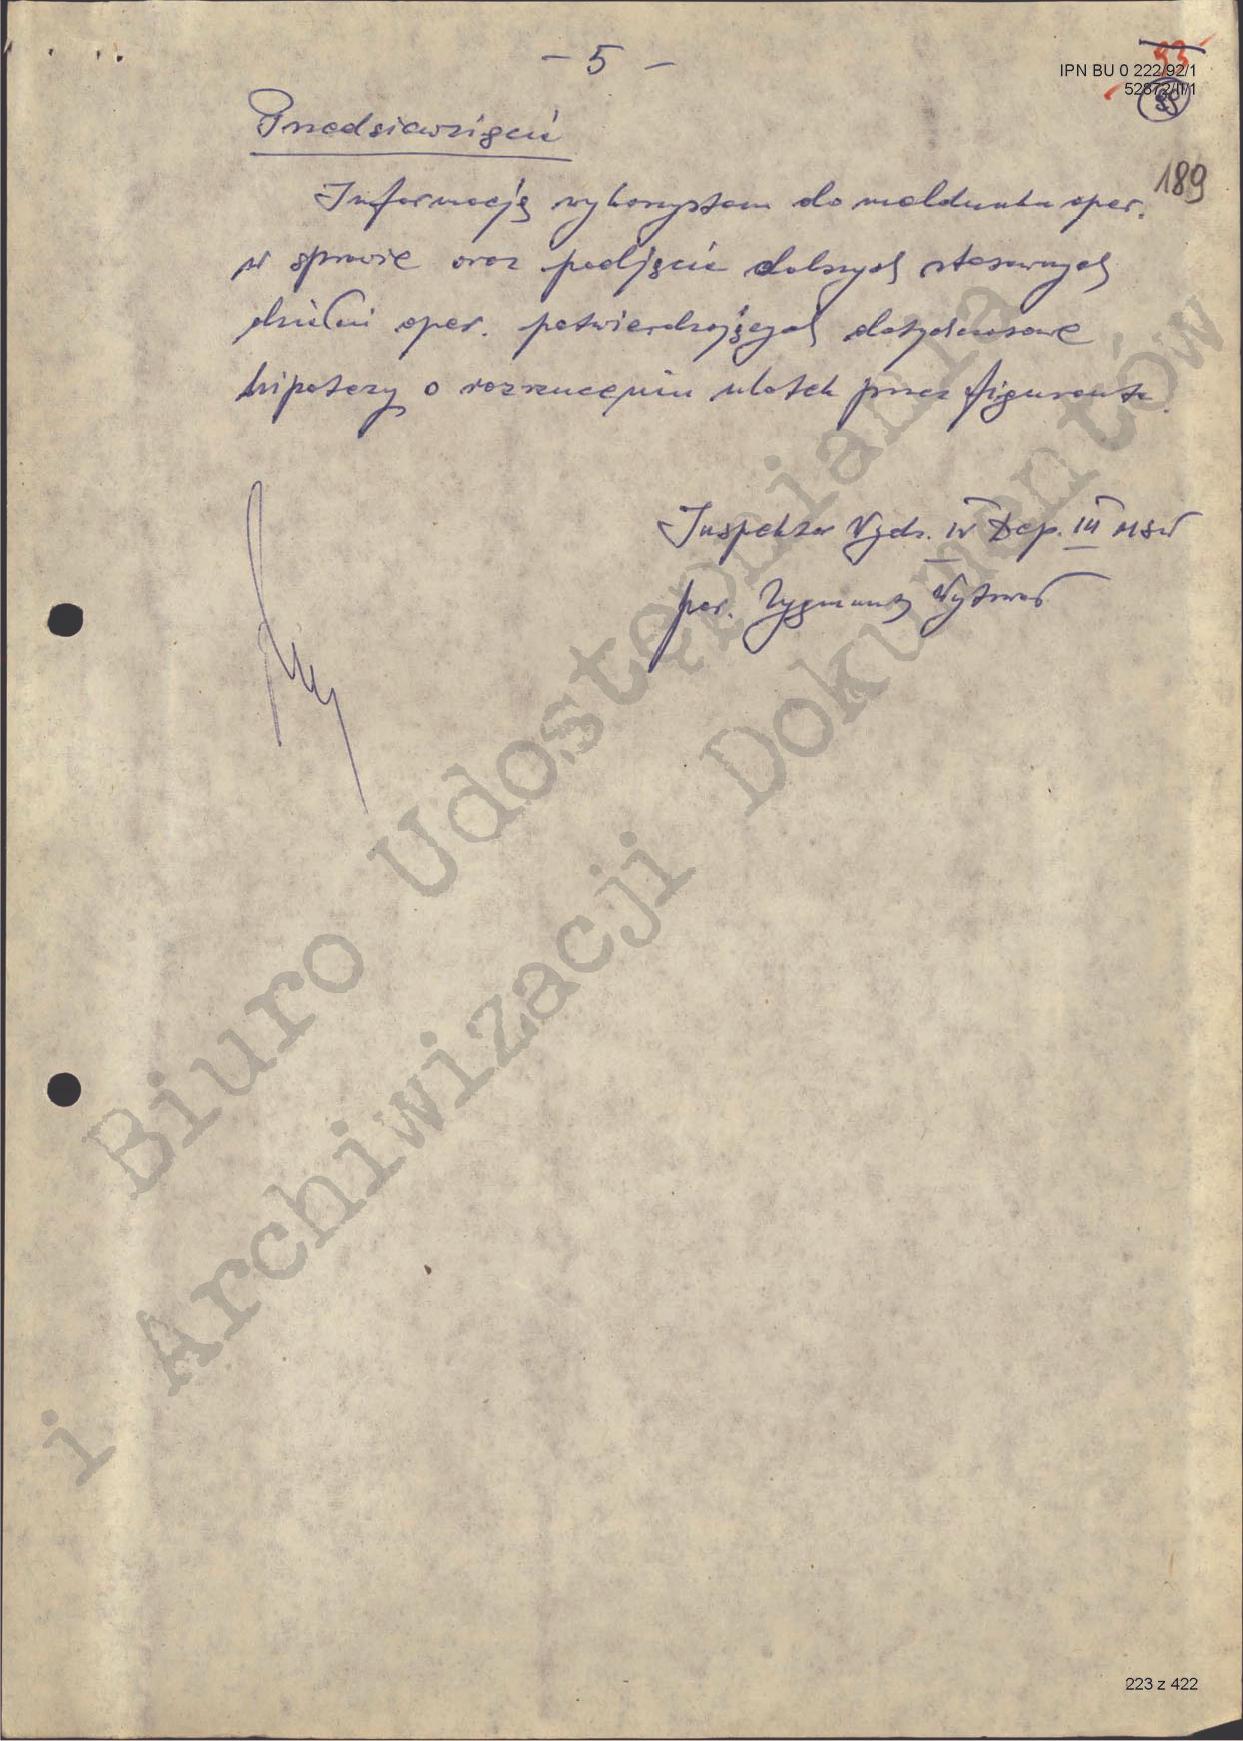 - 5 -
93
IPN BU 0 222/92/1
52872/II/1
189
Przedsięwzięcie
Informację wykorzystam do meldunku oper.
w sprawie oraz podjęcie dalszych stosownych
działań oper. potwierdzających dotychczasowe
hipotezy o rozrzuceniu ulotek przez figuranta.
Inspektor Wydz. IV Dep. III MSW
por. Zygmunt Wytrwał
Biuro Udostępniania
i Archiwizacji Dokumentów
223 z 422